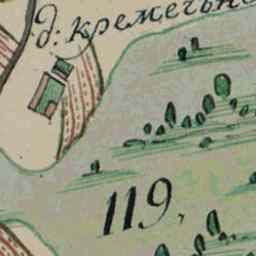 д: кремечьне
119,